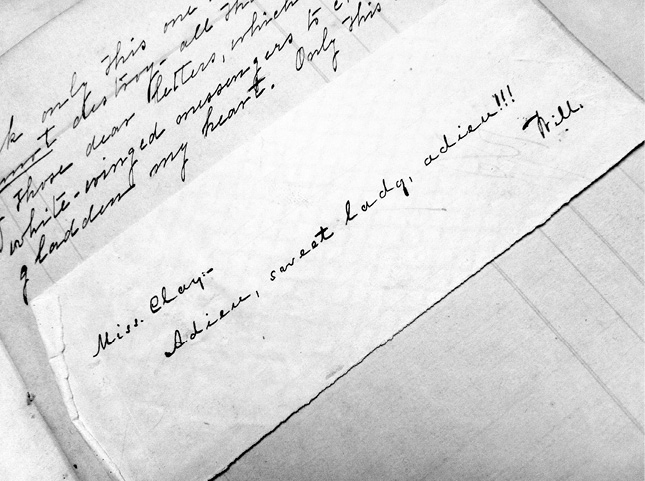 k only this one
must destroy - all th
those dear letters, which
white-winged messengers to
gladden my heart. Only this
Miss. Clay:-
Adieu, sweet lady, adieu!!!
Will.